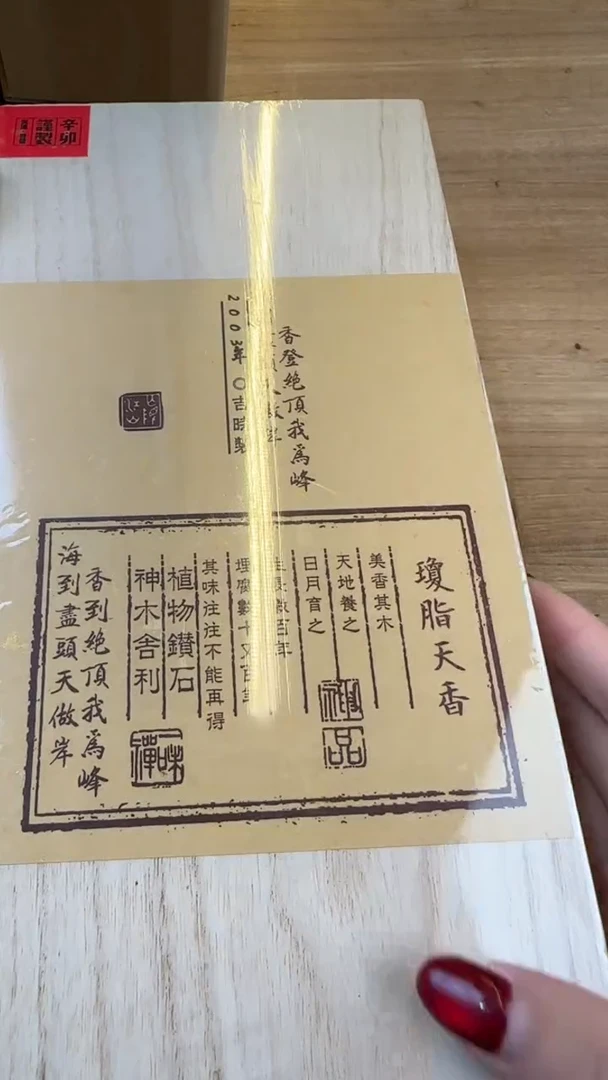 辛卯
謹製
香登絶頂我爲峰
2003年〇吉時製
瓊脂天香
美香其木
天地養之
日月育之
神品
數百年
數十又百年
其味注注不能再得
植物鑽石
神木舍利
一味禪
香到絶頂我爲峰
海到盡頭天做岸